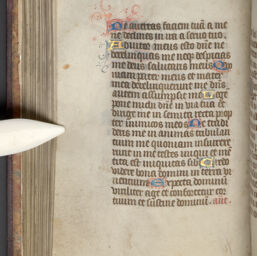 Ne auertas faciem tuā a me
ne declines in ira a seruo tuo
Adiutor meus esto dn̄e ne
derelinquas me neqꝫ despicias
me deus salutaris meus Qm̄
iam pater meus et mater
mea dereliquerunt me dn̄s
autem assumpsit me Lege
pone michi dn̄e in uia tua et
dirige me in semita recta prop
ter inimicos meos Ne tradi
deris me in animas tribulan
cium me quoniam insurrex
erunt in me testes iniqui et mē
tita est iniquitas sibi Credo
uidere bona domini in terra vi
uencium Expecta dominū
viriliter age et confortetur cor
tuum et sustine dominū. añt.